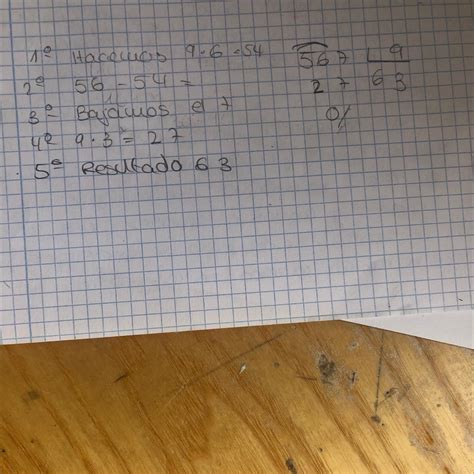 1º Hacemos 9·6=54
2º 56-54=
3º Bajamos el 7
4º 9·3=27
5º Resultado 63
567 9
27 63
0/